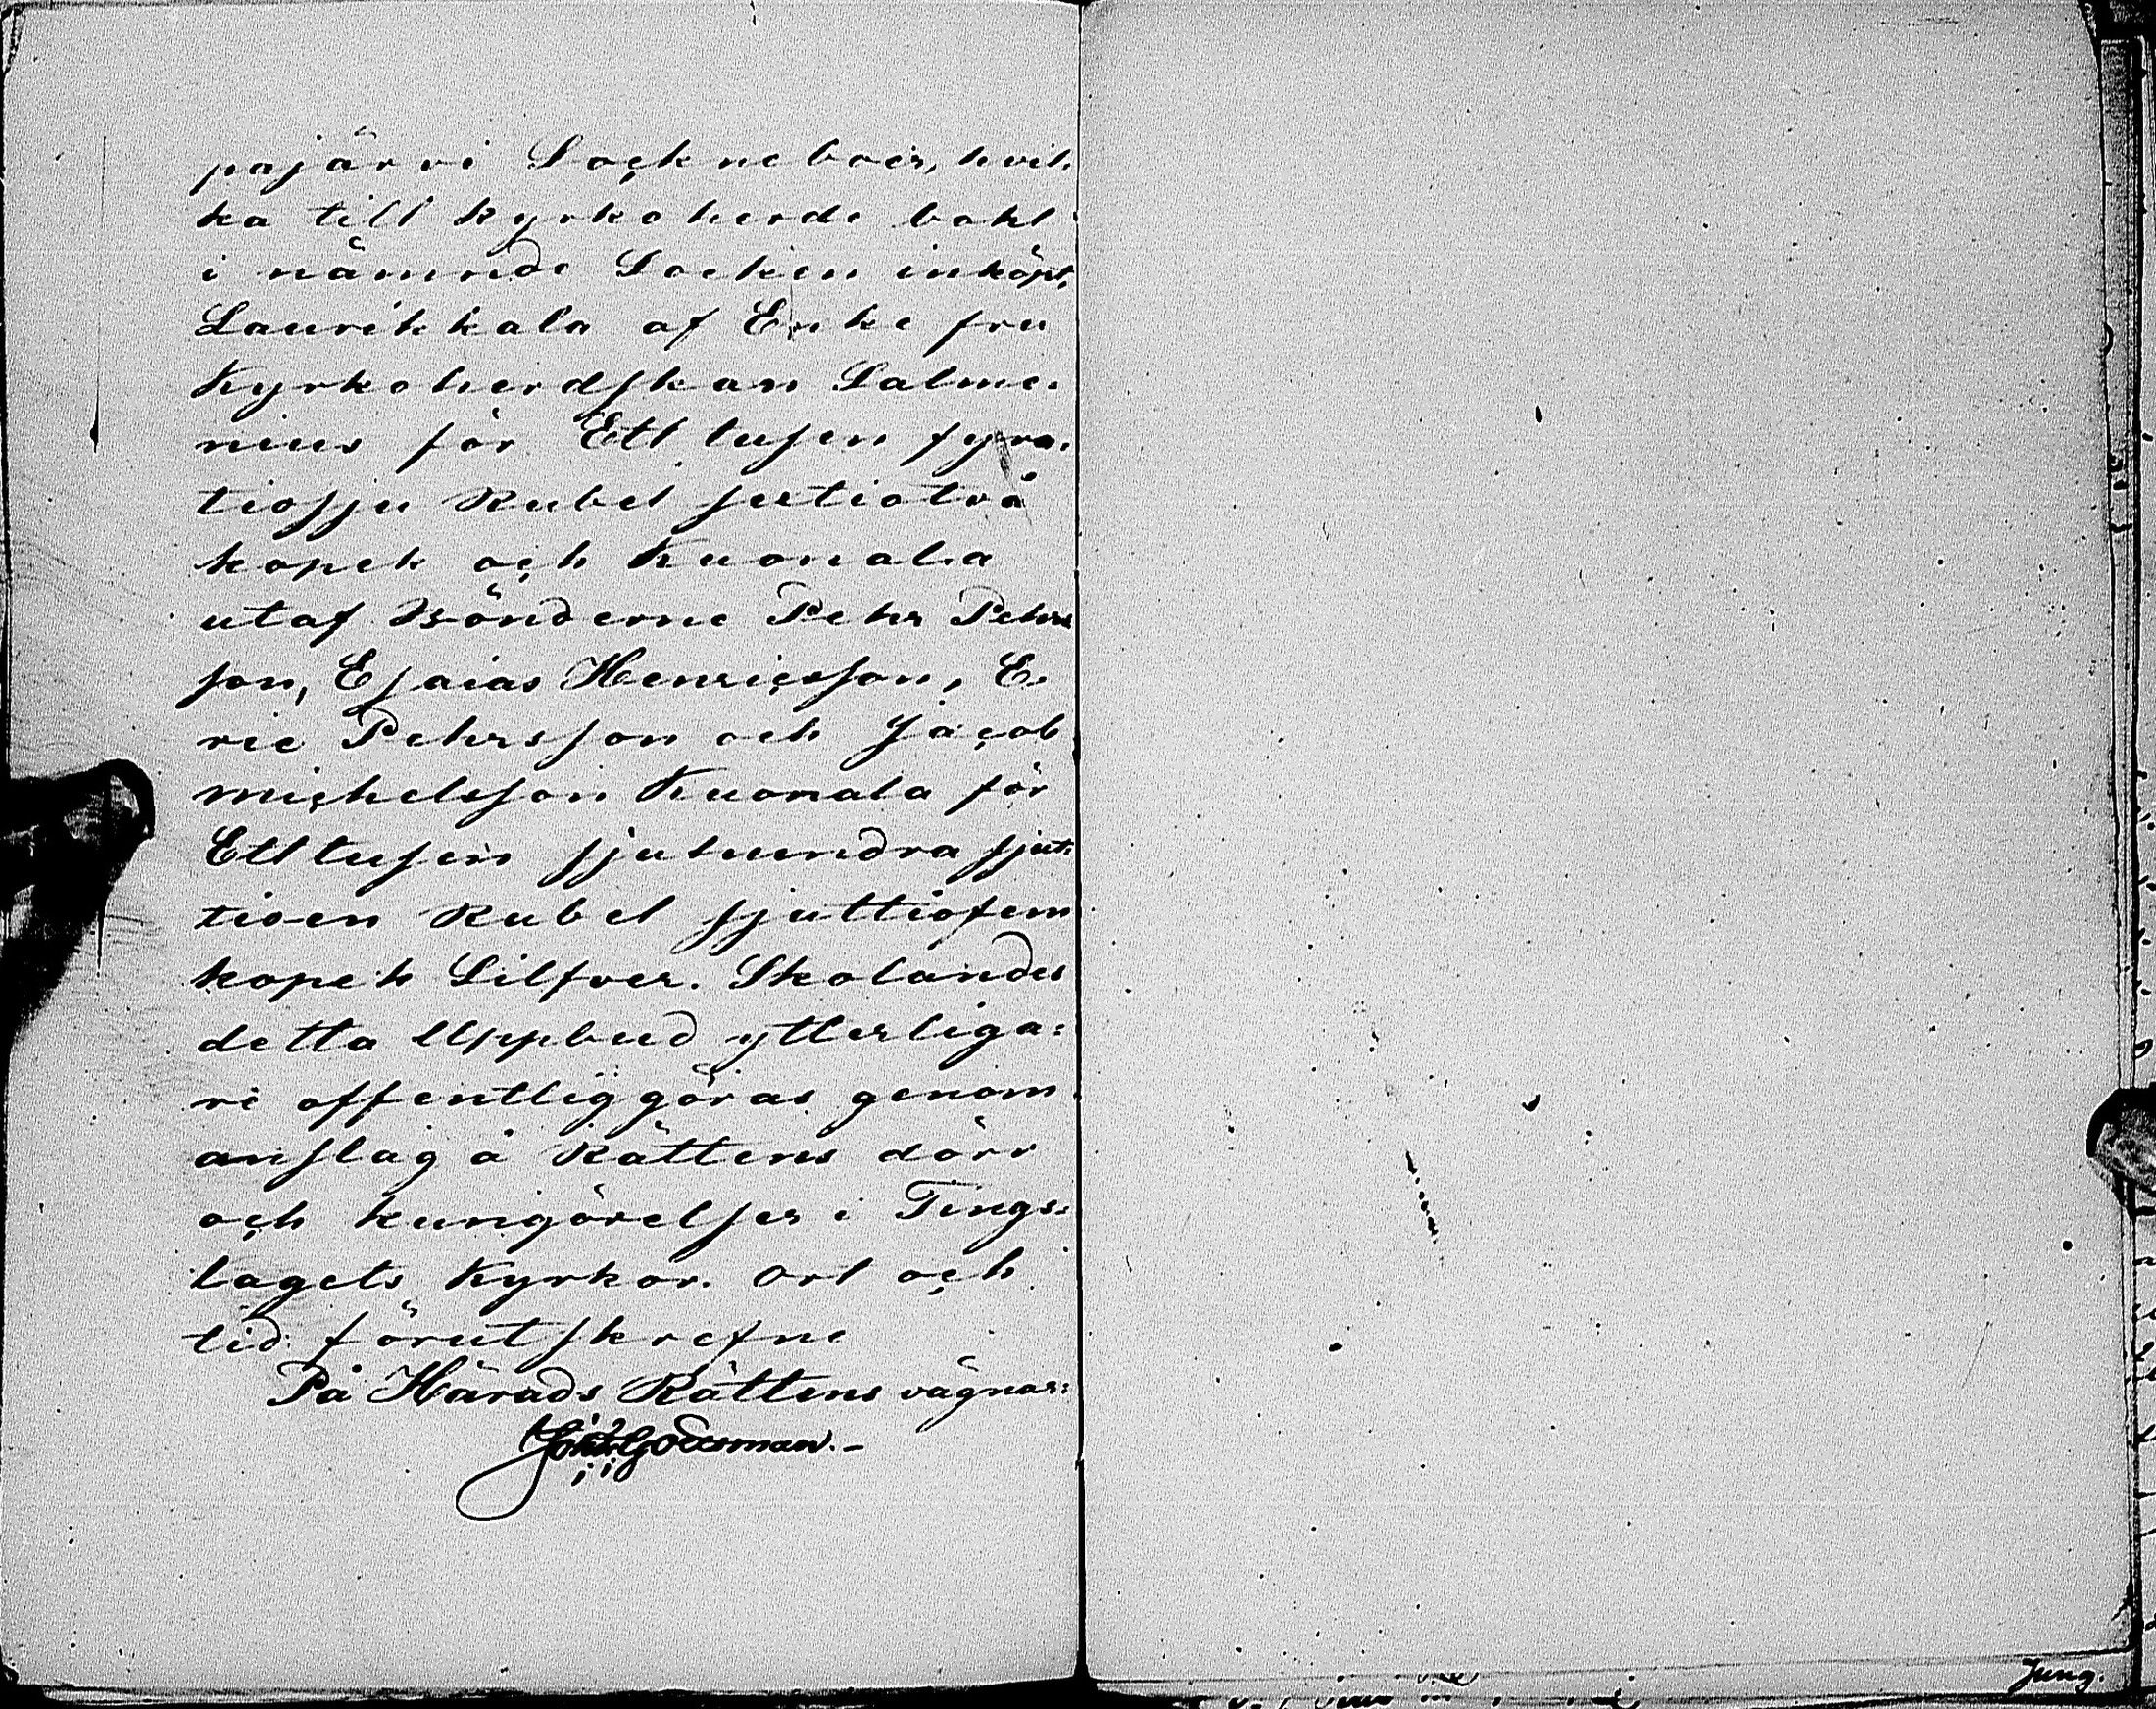 pajärvi Sockneboer, hvil-
ka till kyrkoherde bohl
i nämnde Socken inköpt,
Laurikkala af Enke fru
Kyrkoherdskan Salme-
nius för Ett tusen fyra-
tiosju Rubel sextiotvå
kopek och Kuonala
utaf Bönderne Pehr Pehrs
son, Esaias Henricsson, E-
ric Pehrsson och Jacob
Michelsson Kuonala för
Ett tusen sjuhundra sjut-
tioen Rubel sjuttiofem
kopek Silfver. Skolandes
detta Uppbud ytterliga-
re offentliggöras genom
anslag å Rättens dörr
och kungörelser i Tings-
lagets Kyrkor. Ort och
tid förutskrefne
På Härads Rättens vägnar:
Joh: Godsman.-
Jung.